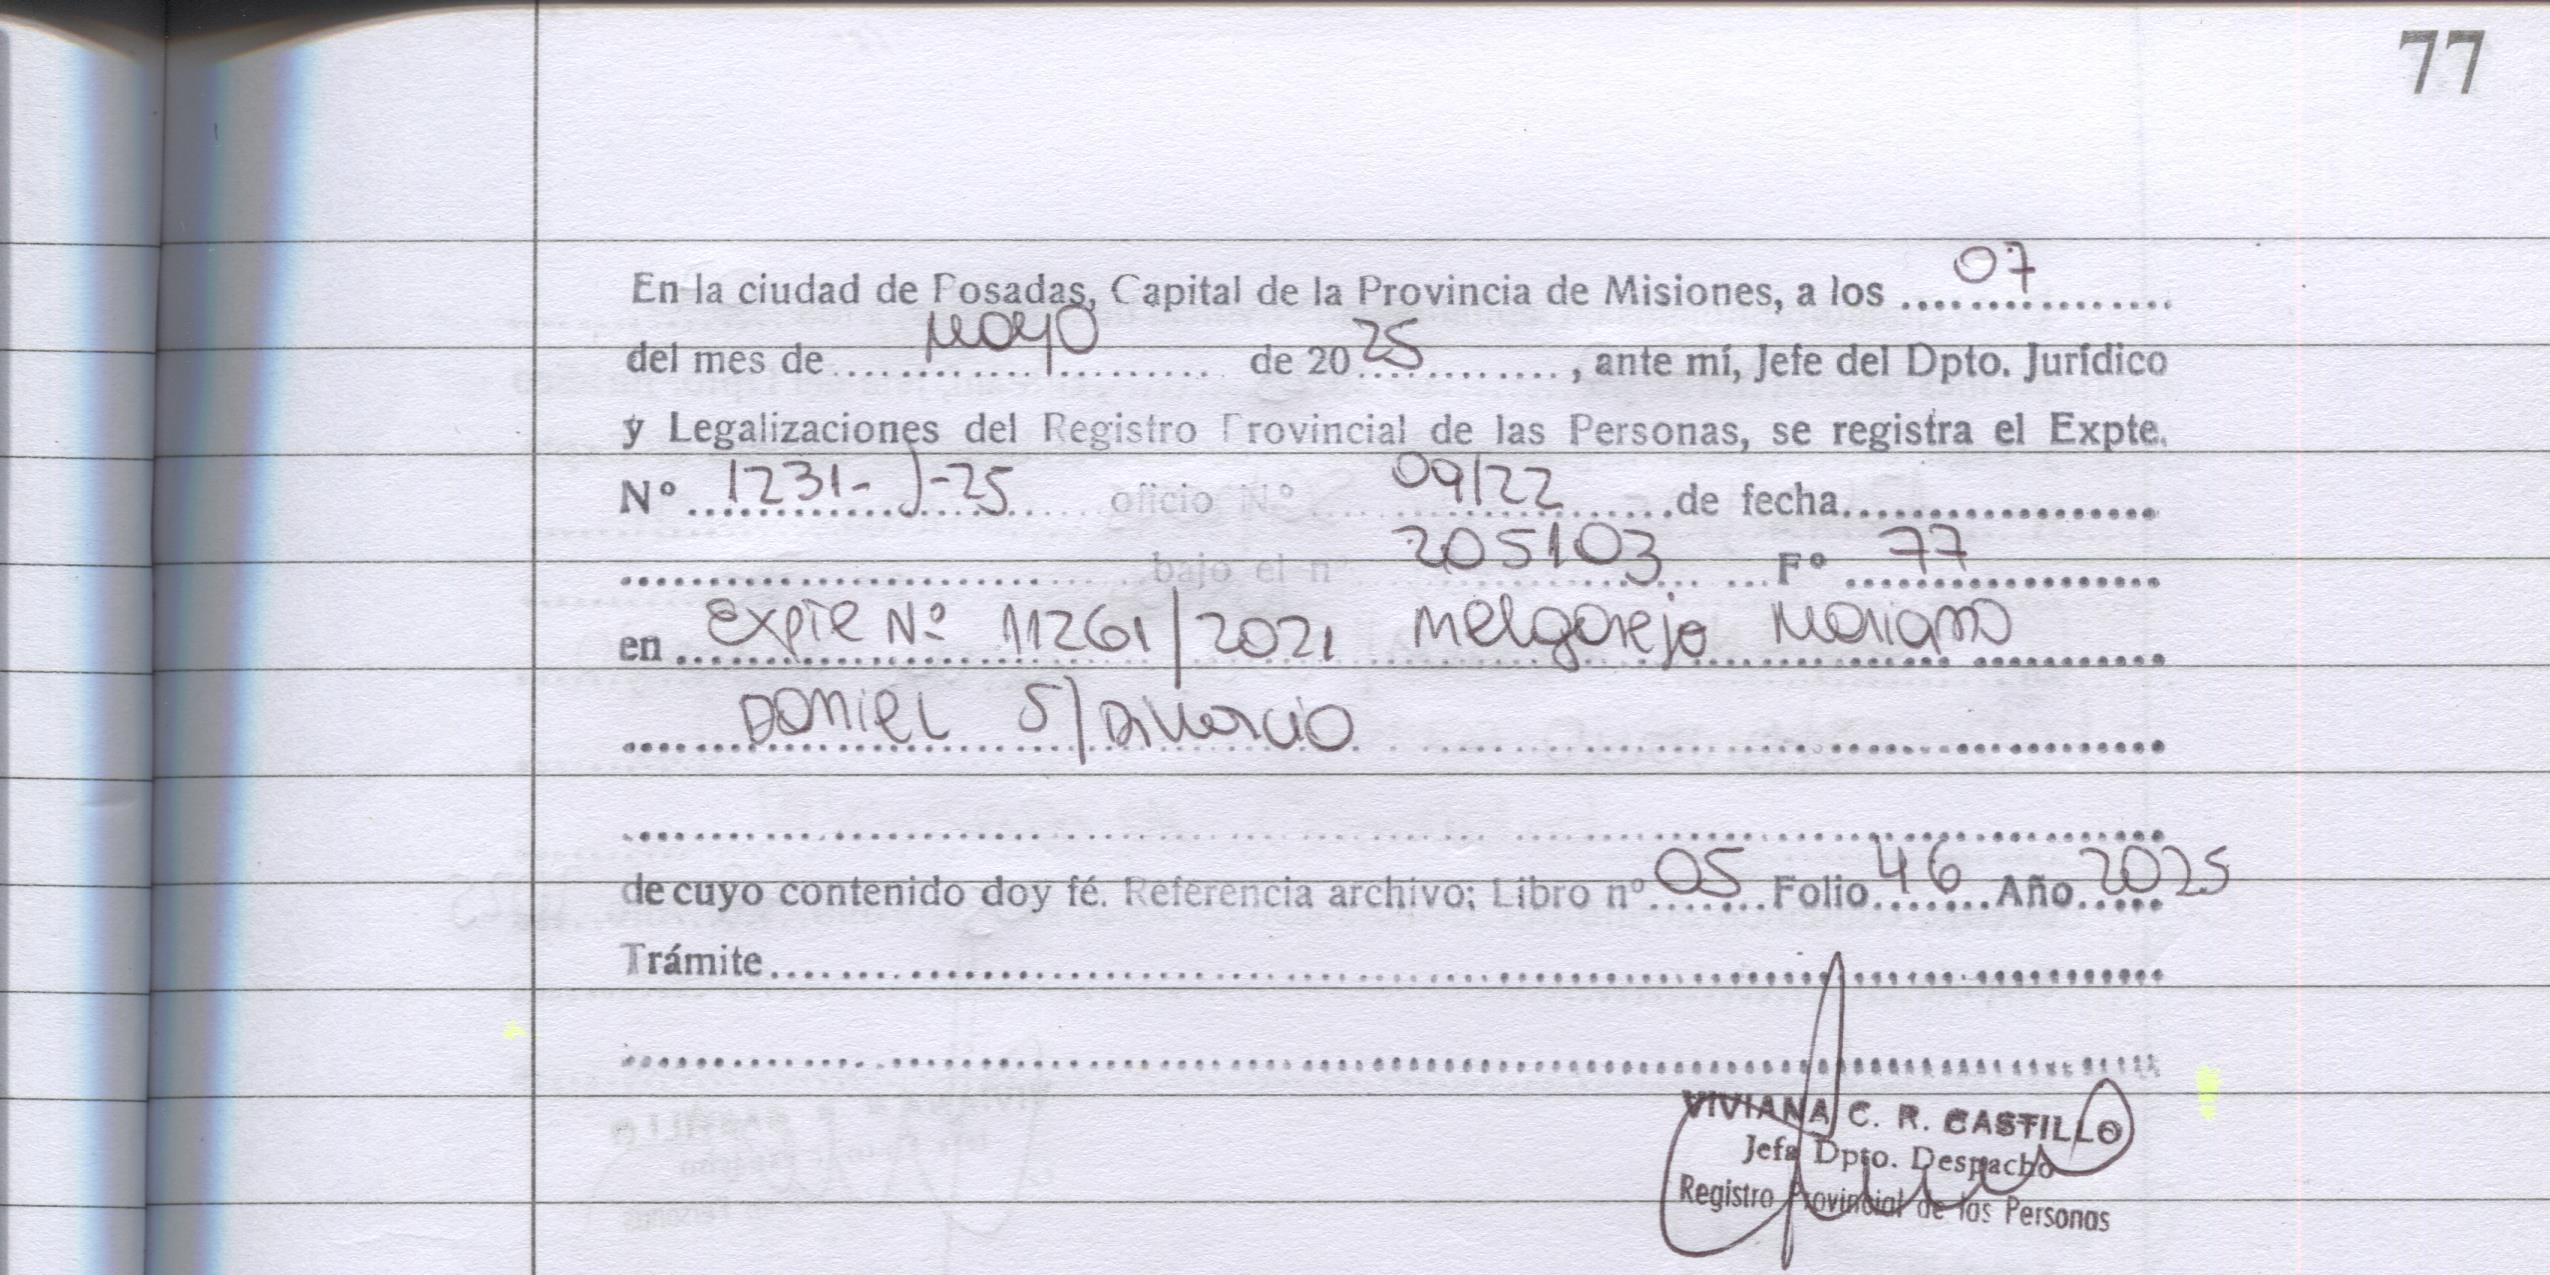 77
En la ciudad de Posadas, Capital de la Provincia de Misiones, a los 07
del mes de Mayo de 2025, ante mí, Jefe del Dpto. Jurídico
y Legalizaciones del Registro Provincial de las Personas, se registra el Expte.
Nº 1231-J-25 oficio Nº 09/22 de fecha
bajo el nº 205103 Fº 77
en Expte Nº 11261/2021 Melgarejo Mariano
Daniel S/Divorcio
de cuyo contenido doy fé. Referencia archivo; Libro nº 05 Folio 46 Año 2025
Trámite
VIVIANA C. R. CASTILLO
Jefa Dpto. Despacho
Registro Provincial de las Personas